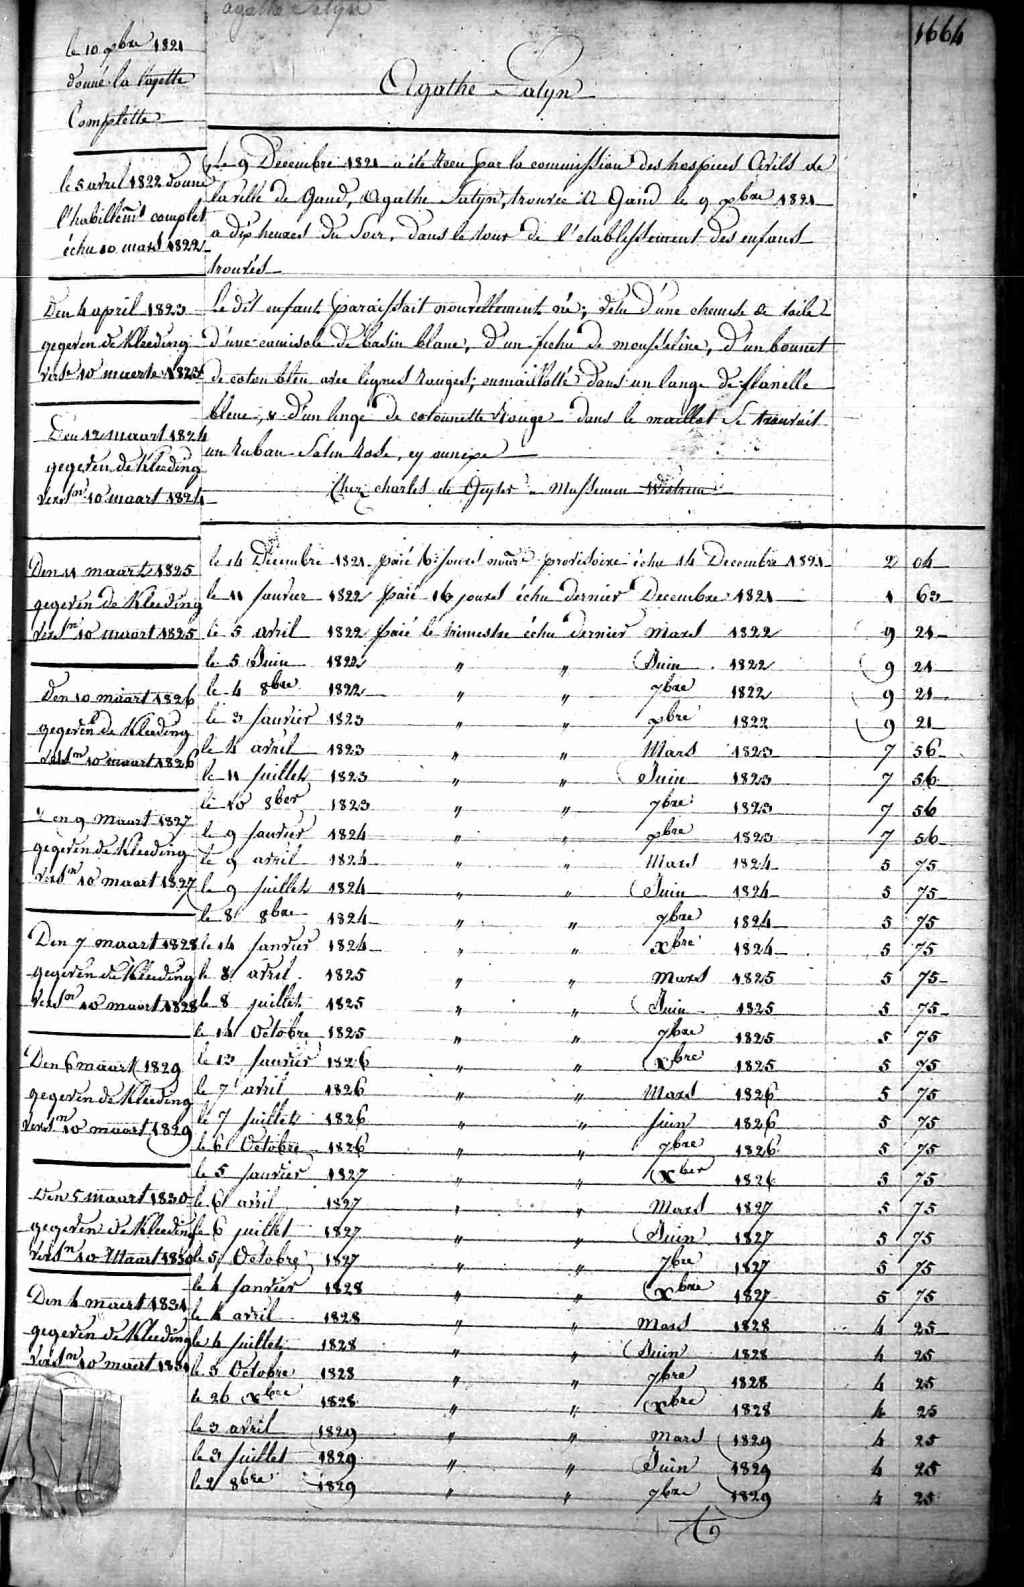 agathe Satyn
1664
Agathe Satyn
le 10 xbre 1821
donné la layette
Complette
le 5 avril 1822 donné
l'habillemt complet
échu 10 mars 1822
Den 4 april 1823
gegeven de kleeding
verst 10 maerte 1823
Den 12 maart 1824
gegeven de kleeding
verstn 10 maart 1824
Den 11 maart 1825
gegeven de kleeding
verstn 10 maart 1825
Den 10 maart 1826
gegeven de kleeding
verstn 10 maart 1826
Den 9 maart 1827
gegeven de kleeding
verstn 10 maart 1827
Den 7 maart 1828
gegeven de kleeding
verstn 10 maart 1828
Den 6 maart 1829
gegeven de kleeding
verstn 10 maart 1829
Den 5 maart 1830
gegeven de kleeding
verstn 10 Maart 1830
Den 4 maert 1831
gegeven de kleeding
verstn 10 maert 1831
Le 9 Decembre 1821 a été reçu par la commission des hospices Civils de
la ville de Gand, Agathe Satyn, trouvée à Gand le 9 xbre 1821
a dix heures du Soir, dans le tour de l'etablissement des enfans
trouvés
Le dit enfant paraissait nouvellement né; vêtu d'une chemise de toile
d'une camisole de basin blanc, d'un fichu de mousseline, d'un bonnet
de coton bleu avec lignes rouges; emmaillotté dans un lange de flanelle
bleue, & d'un linge de cotonnette rouge dans le maillot se trouvait
un ruban Satin Rose, cy annexe
Chez charles de Geyter a Massemen Westrem
le 14 Décembre 1821 paié 6 jours nourre provisoire échu 14 Decembre 1821 2 04
le 11 janvier 1822 paié 16 jours échu dernier Decembre 1821 1 63
le 5 avril 1822 paié le trimestre échu dernier Mars 1822 9 21
le 5 Juin 1822 " " Juin 1822 9 21
le 4 8bre 1822 " " 7bre 1822 9 21
le 3 janvier 1823 " " xbre 1822 9 21
le 4 avril 1823 " " Mars 1823 7 56
le 11 juillet 1823 " " Juin 1823 7 56
le 10 8ber 1823 " " 7bre 1823 7 56
le 9 janvier 1824 " " xbre 1823 7 56
le 9 avril 1824 " " Mars 1824 5 75
le 9 juillet 1824 " " Juin 1824 5 75
le 8 8bre 1824 " " 7bre 1824 5 75
le 14 janvier 1824 " " xbre 1824 5 75
le 8 avril 1825 " " Mars 1825 5 75
le 8 juillet 1825 " " Juin 1825 5 75
le 14 Octobre 1825 " " 7bre 1825 5 75
le 13 janvier 1826 " " xbre 1825 5 75
le 7 avril 1826 " " Mars 1826 5 75
le 7 juillet 1826 " " juin 1826 5 75
le 6 Octobre 1826 " " 7bre 1826 5 75
le 5 janvier 1827 " " xber 1826 5 75
le 6 avril 1827 " " Mars 1827 5 75
le 6 juillet 1827 " " Juin 1827 5 75
le 5 Octobre 1827 " " 7bre 1827 5 75
le 4 janvier 1828 " " xbre 1827 5 75
le 4 avril 1828 " " Mars 1828 4 25
le 4 juillet 1828 " " Juin 1828 4 25
le 3 Octobre 1828 " " 7bre 1828 4 25
le 26 xbre 1828 " " xbre 1828 4 25
le 3 avril 1829 " " Mars 1829 4 25
le 3 juillet 1829 " " Juin 1829 4 25
le 2 8bre 1829 " " 7bre 1829 4 25